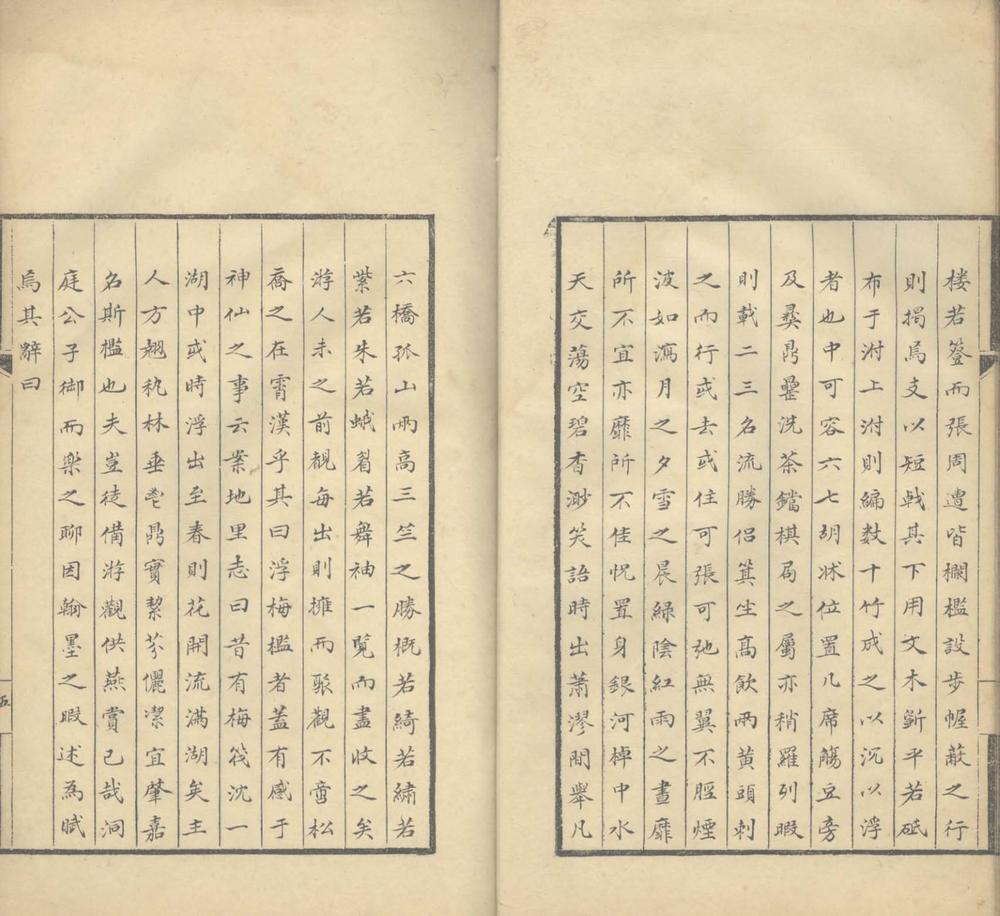 楼若簦而張周遭皆欄檻設步幄蔽之行
則揭焉支以短戟其下用文木斲平若砥
布于泭上泭則編数十竹成之以沉以浮
者也中可容六七胡牀位置几席觴豆旁
及彞鼎罍洗茶鐺棋局之屬亦稍羅列暇
則載二三名流勝侣箕坐髙飲兩黄頭刺
之而行或去或住可張可弛無翼不脛煙
波如瀉月之夕雪之晨緑陰紅雨之晝靡
所不宜亦靡所不佳怳置身銀河棹中水
天交蕩空碧杳渺笑語時出萧漻間舉凡
六橋孤山兩高三竺之勝概若綺若繡若
紫若朱若蛾眉若舞袖一覧而盡收之矣
游人未之前覩每出則擁而聚觀不啻松
喬之在霄漢乎其曰浮梅檻者蓋有感于
神仙之事云案地里志曰昔有梅筏沈一
湖中或時浮出至春則花開流滿湖矣主
人方翘秇林垂鼎實絜芬儷潔宜肇嘉
名斯檻也夫豈徒備游觀供燕賞已哉洞
庭公子御而樂之聊因翰墨之暇述為賦
焉其辭曰
五